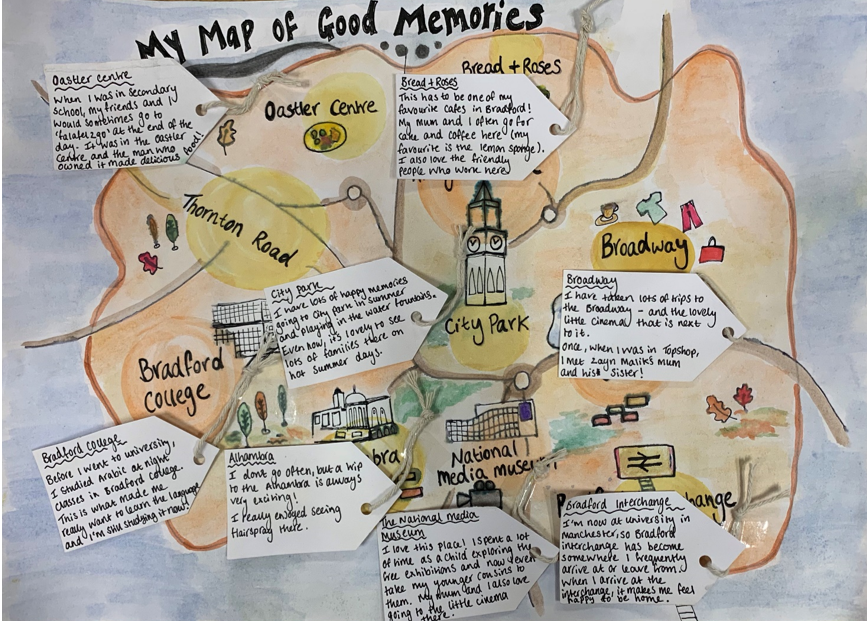 My Map of Good Memories
Oastler centre
When I was in secondary
school, my friends and I
would sometimes go to
'falafel2go' at the end of the
day. It was in the Oastler
Centre and the man who
owned it made delicious food!
Oastler Centre
Bread + Roses
Bread + Roses
This has to be one of my
favourite cafes in Bradford!
My mum and I often go for
cake and coffee here (my
favourite is the lemon sponge).
I also love the friendly
people who work here
Thornton Road
Broadway
City Park
I have lots of happy memories
going to City park in summer
and playing in the water fountains.
Even now, it's lovely to see
lots of families there on
hot summer days.
City Park
Broadway
I have taken lots of trips to
the Broadway – and the lovely
little cinema that is next
to it.
Once, when I was in Topshop,
I met Zayn Malik's mum
and his sister!
Bradford
College
Bradford College
Before I went to university,
I studied Arabic at night
classes in Bradford College.
This is what made me
really want to learn the language
and I'm still studying it now!
Alhambra
I dont go often, but a trip
to the alhambra is always
very exciting!
I really enjoyed seeing
Hairspray there.
bra
National
media museum
The National media
museum
I love this place! I spent a lot
of time as a child exploring the
free exhibitions and now I even
take my younger cousins to
them. My mum and I also love
going to the little cinema
there.
change
Bradford Interchange
I'm now at university in
manchester, so Bradford
interchange has become
somewhere I frequently
arrive at or leave from.
When I arrive at the
interchange, it makes me feel
happy to be home.